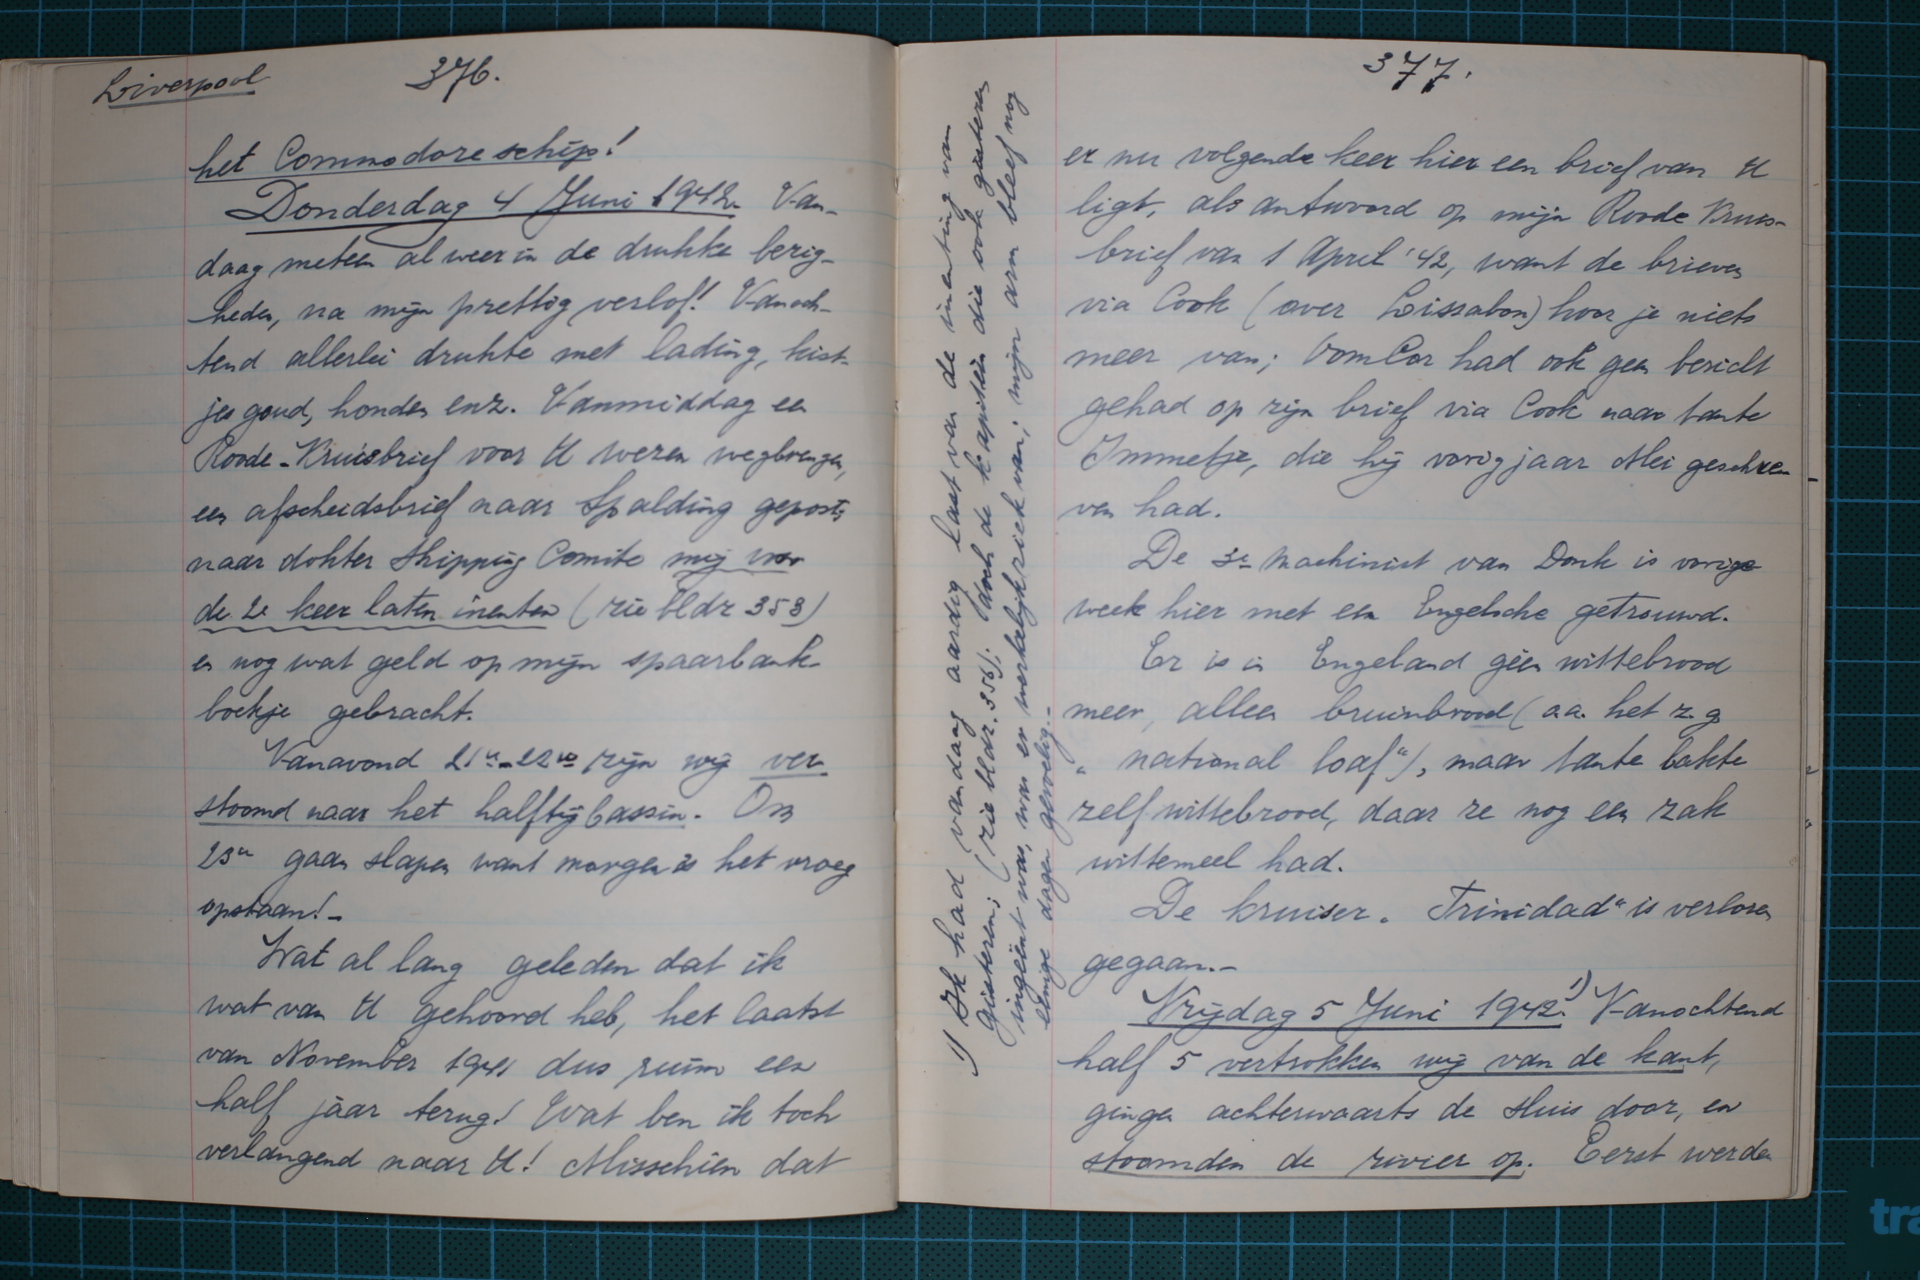 Liverpool
376.
het Commodore schip!
Donderdag 4 Juni 1942. Van-
daag meteen al weer in de drukke bezig-
heden, na mijn prettig verlof! Vanoch-
tend allerlei drukte met lading, kist-
jes goud, honden enz. Vanmiddag een
Roode-Kruisbrief voor U wezen wegbrengen,
een afscheidsbrief naar Spalding gepost,
naar dokter Shipping Comite mij voor
de 2e keer laten inenten (zie bldz 353)
en nog wat geld op mijn spaarbank-
boekje gebracht.
Vanavond 21u-22 zijn wij ver-
stoomd naar het halftijbassin. Om
23u gaan slapen want morgen is het vroeg
opstaan! -
Wat al lang geleden dat ik
wat van U gehoord heb, het laatst
van November 1941 dus ruim een
half jaar terug! Wat ben ik toch
verlangend naar U! Misschien dat
1) Ik had vandaag aardig last van de inenting van
gisteren; (zie bldz. 356); doch de kapitein die ook gisteren
ingeënt was, was er werkelijk ziek van; mijn arm bleef nog
eenige dagen gevoelig.-
377.
er nu volgende keer hier een brief van U
ligt, als antwoord op mijn Roode Kruis-
brief van 1 April '42, want de brieven
via Cook (over Lissabon) hoor je niets
meer van; Oom Cor had ook geen bericht
gehad op zijn brief via Cook naar tante
Immetje, die hij vorig jaar Mei geschre-
ven had.
De 3e machinist van Donk is vorige
week hier met een Engelsche getrouwd.
Er is in Engeland géén wittebrood
meer, alleen bruinbrood (a.a. het z.g
„national loaf"), maar tante bakte
zelf wittebrood, daar ze nog een zak
wittemeel had.
De kruiser „Trinidad" is verloren
gegaan.-
Vrijdag 5 Juni 1942. 1) Vanochtend
half 5 vertrokken wij van de kant,
gingen achterwaarts de sluis door, en
stoomden de rivier op. Eerst werden